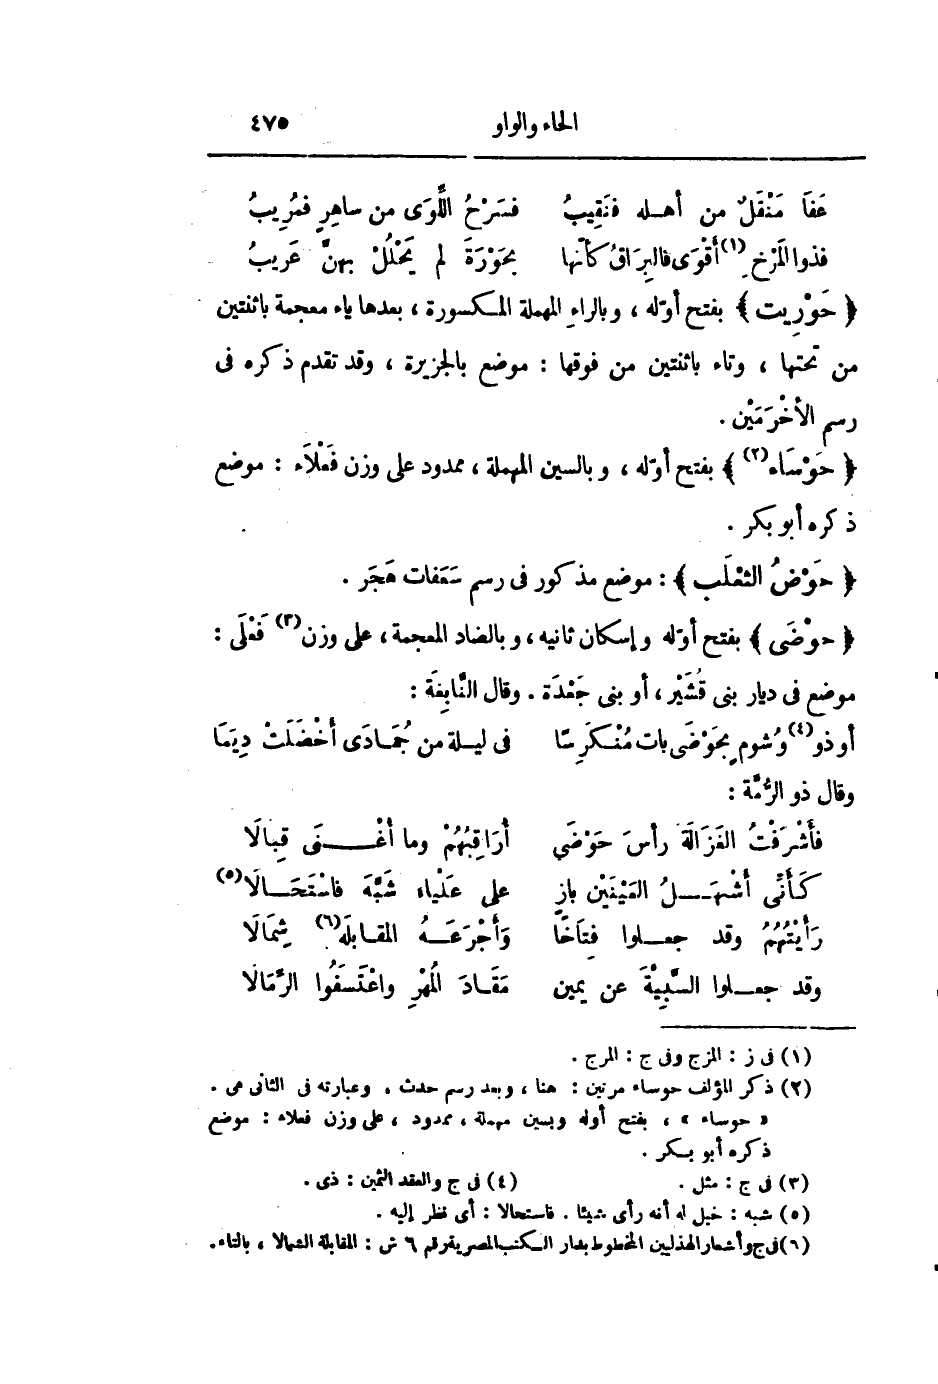 الحاء والواو ٤٧٥
عَفَا مَنْقَلٌ من أهله فنَقِيبُ فسَرْحُ اللَّوَى من ساهِرٍ فمُرِيبُ
فذوا المَرْخِ(١) أقْوَى فالبِرَاقُ كأنّها بحَوْرَةَ لم يَحْلُلْ بهنَّ عَرِيبُ
﴿ حَوْرِيت ﴾ بفتح أوّله ، وبالراءِ المهملة المكسورة ، بعدها ياء معجمة باثنتين
من تحتها ، وتاء باثنتين من فوقها : موضع بالجزيرة ، وقد تقدم ذكره فى
رسم الأخْرَمَيْن .
﴿ حَوْسَاء(٢) ﴾ بفتح أوّله ، وبالسين المهملة ، ممدود على وزن فَعْلَاء : موضع
ذكره أبو بكر .
﴿ حَوْضُ الثعْلَب ﴾ : موضع مذكور فى رسم سَعَفات هَجَر .
﴿ حوْضَى ﴾ بفتح أوّله وإسكان ثانيه ، وبالضاد المعجمة ، على وزن(٣) فَعْلَى :
موضع فى ديار بنى قُشَيْر ، أو بنى جَعْدَة . وقال النَّابِغَة :
أو ذو(٤) وُشومٍ بحَوْضَى بات مُنْكَرِسًا فى ليلة من جُمَادَى أخْضَلَتْ دِيَمَا
وقال ذو الرُّمَّة :
فأَشْرَفْتُ الغَزَالَةَ رأسَ حَوْضَى أرَاقِبُهُمْ وما أغْنَى قِبالَا
كأنّى أشْهَلُ العَيْنَيْن بازٍ على عَلْياء شَبَّهَ فاسْتَحَالَا(٥)
رَأيْتُهُمُ وقد جعلوا فِتَاخًا وَأجْرَعَهُ المقابلَه(٦) شِمَالَا
وقد جعلوا السَّبِيَّةَ عن يمين مَقَادَ المُهْرِ واعْتَسَفُوا الرِّمَالَا
(١) فى ز : المزج وفى ج : المرج .
(٢) ذكر المؤلف حوساء مرتين : هنا ، وبعد رسم حدث . وعبارته فى الثانى هى .
« حوساء » ، بفتح أوله وبسين مهملة ، ممدود ، على وزن فعلاء : موضع
ذكره أبو بكر .
(٣) فى ج : مثل . (٤) فى ج والعقد الثمين : ذى .
(٥) شبه : خيل له أنه رأى شيئا . فاستحالا : أى نظر إليه .
(٦) فى ج وأشعار الهذليين المخطوط بدار الكتب المصرية رقم ٦ ش : المقابلة الشمالا ، بالتاء .